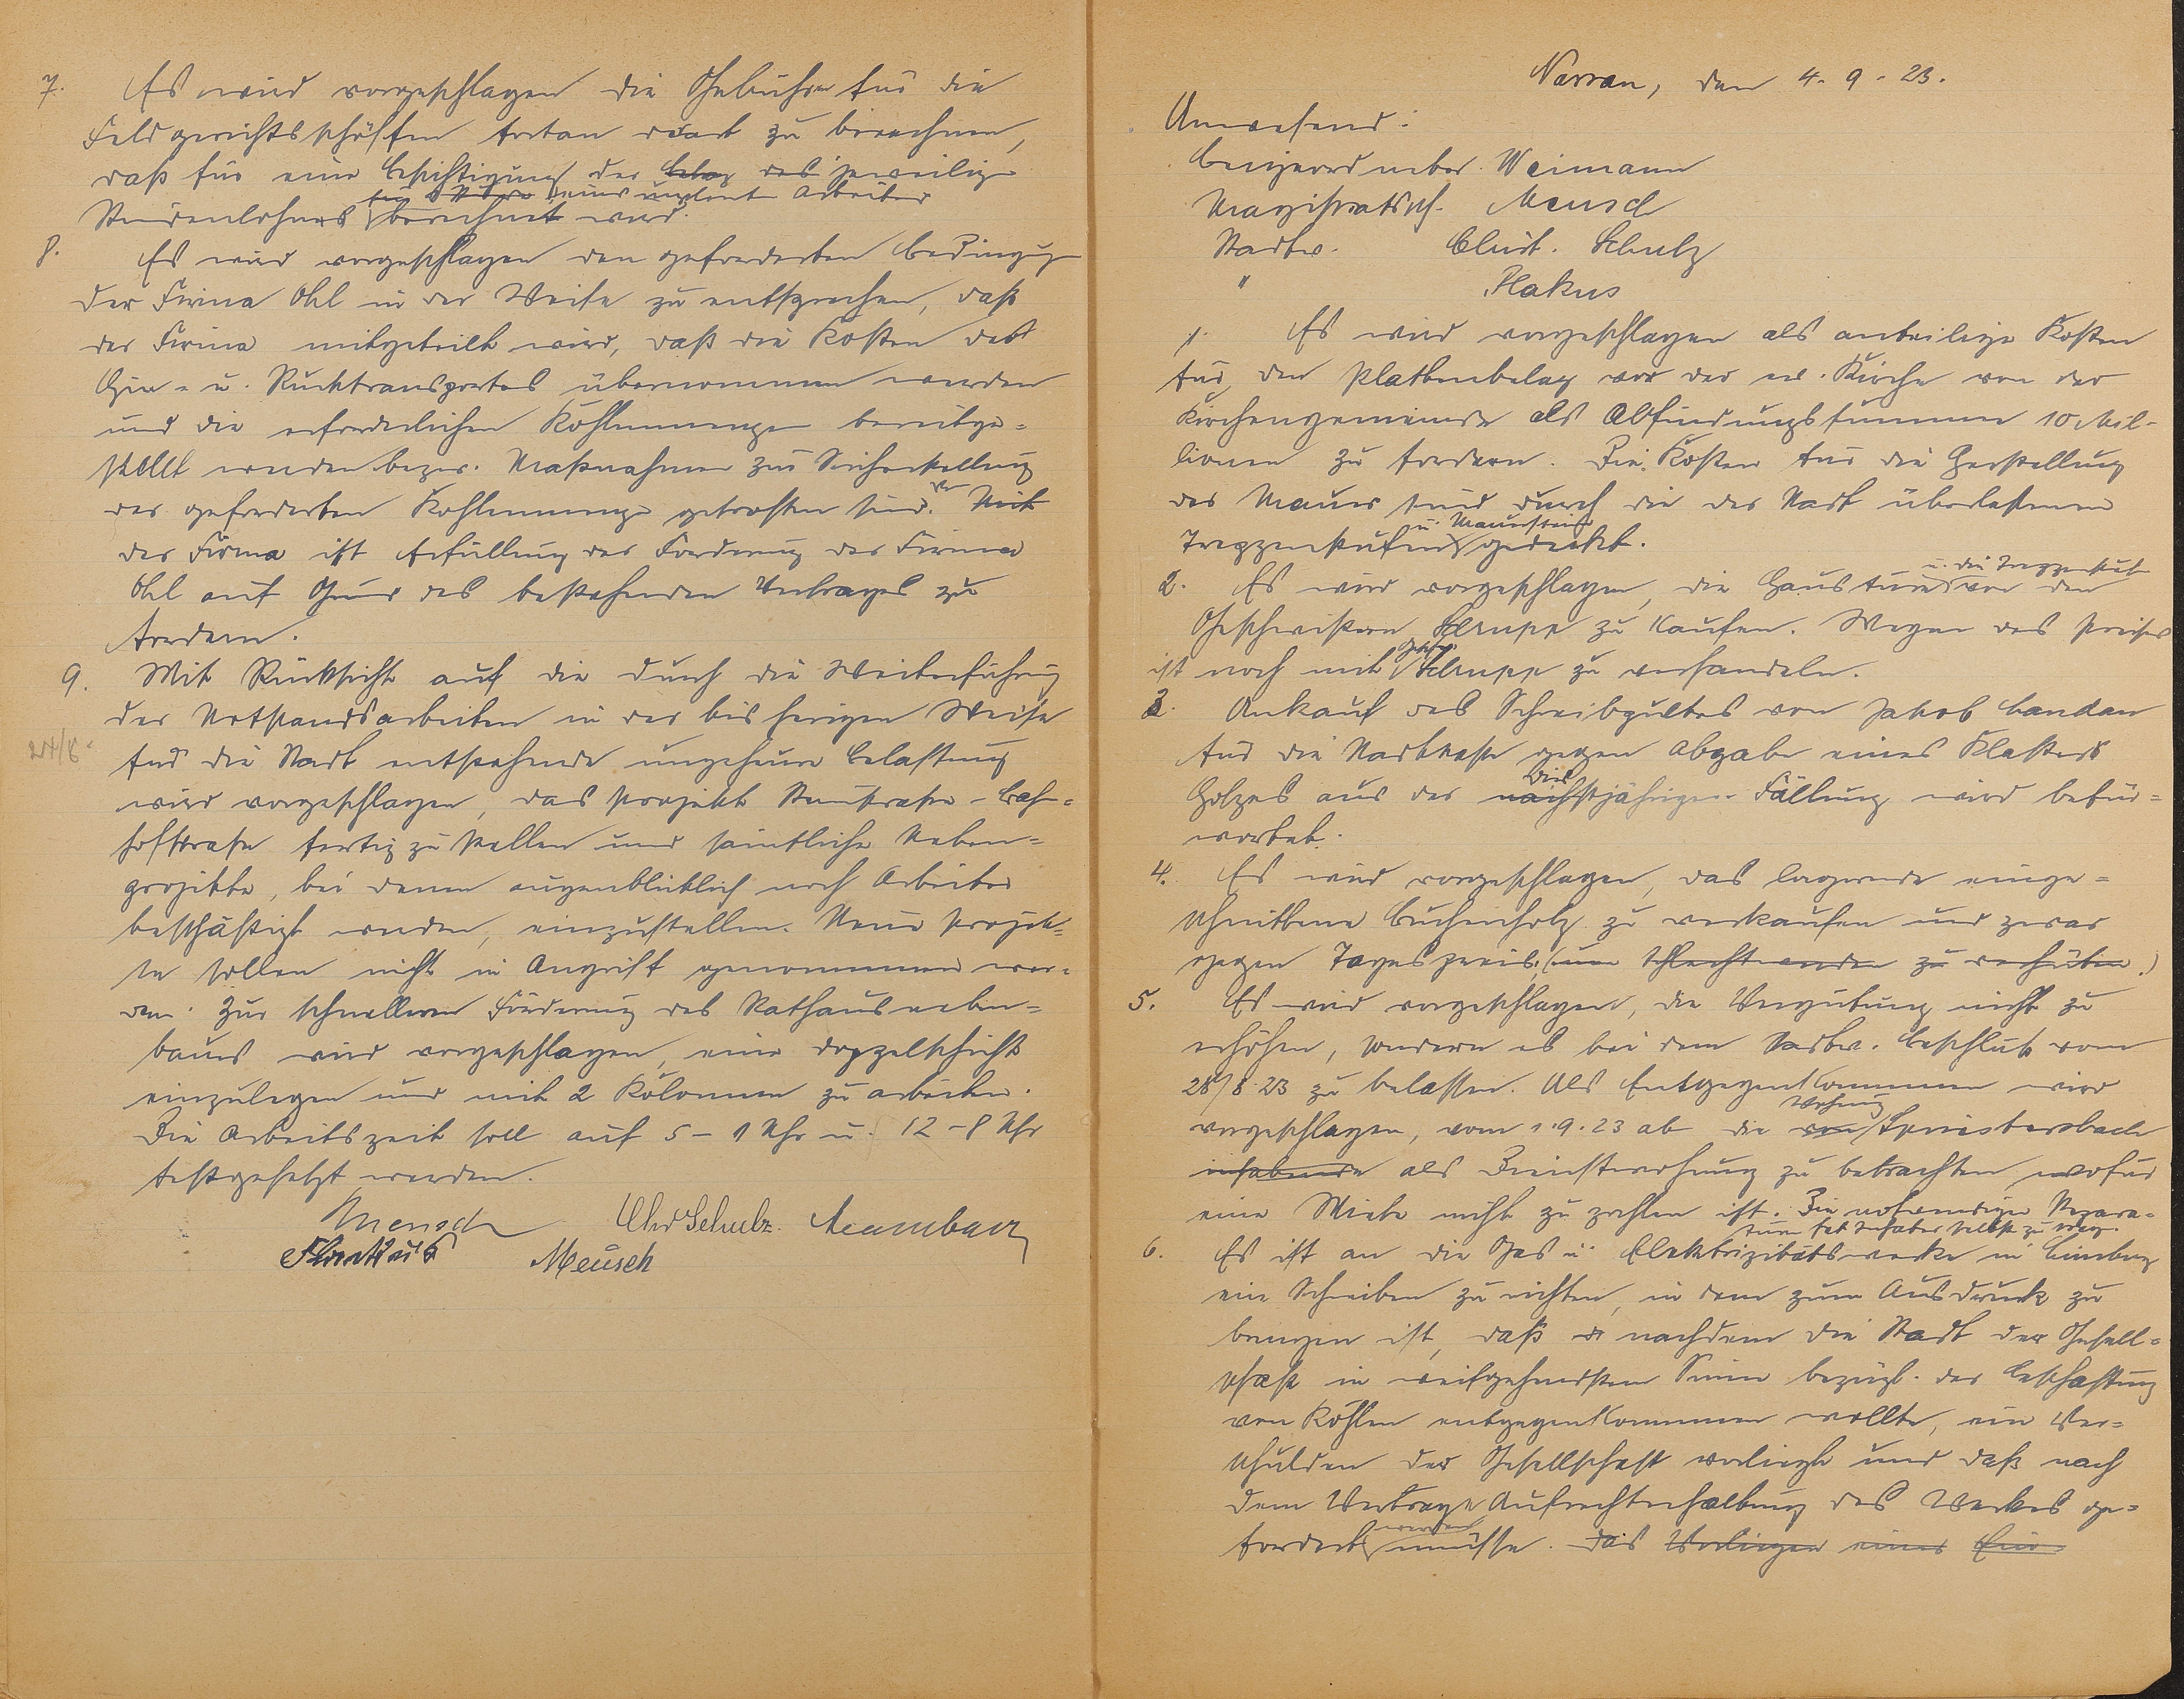 7. Es wird vorgeschlagen die Gebühren für die
Feldgerichtsschöffen fortan derart zu berechnen,
daß für eine Besichtigung der Betrag des jeweilige
für 2 Stunden eines ungelernt. Arbeiters
Stundenlohnes berechnet wird.
8. Es wird vorgeschlagen den geforderten Bedingungen
der Firma Ohl in der Weise zu entsprechen, daß
der Firma mitgeteilt wird, daß die Kosten des
Hin- u. Rücktransportes übernommen werden
und die erforderlichen Kohlenmengen bereitge-
stellt werden bezw. Maßnahmen zur Sicherstellung
der geforderten Kohlenmenge getroffen sind. Mit
der Firma ist Erfüllung der Forderung der Firma
Ohl auf Grund des bestehenden Vertrages zu
fordern.
9. Mit Rücksicht auf die durch die Weiterführung
der Notstandsarbeiten in der bisherigen Weise
für die Stadt entstehende ungeheure Belastung
wird vorgeschlagen, das Projekt Bahn-
hofstraße fertig zu stellen und sämtliche Neben-
projekte, bei denen augenblicklich noch Arbeiter
beschäftigt werden, einzustellen. Neue Projek-
te sollen nicht in Angriff genommen wer-
den. Zur schnelleren Förderung des Rathausneben-
baues wird vorgeschlagen, eine Doppelschicht
einzulegen und mit 2 Kolonnen zu arbeiten.
Die Arbeitszeit soll auf 5-1 Uhr u. 12-8 Uhr
festgesetzt werden.
Mensch Chr Schulz
Meusch
den 4.9.23.
Anwesend:
Beigeordneter Weimann
Magistratsch. Meusch
Stadtv. Christ. Schulz
"
1. Es wird vorgeschlagen als anteilige Kosten
für den Plattenbelag vor der ev. Kirche von der
Kirchengemeinde als Abfindungssumme 10 Mil-
lionen zu fordern. Die Kosten für die Herstellung
der Mauer sind durch die der Stadt überlassenen
u. Mauersteine
Treppenstufen gedeckt.
u. die Treppenstufen
2. Es wird vorgeschlagen, die Haustüre von den
Geschwistern Schupp zu kaufen. Wegen des Preises
ist noch mit Schupp zu verhandeln.
3. Ankauf des Schreibpultes von Jakob Landau
für die Stadtkasse gegen Abgabe eines Klafters
dies
Holzes aus der nächstjährigen Fällung wird befür-
wortet.
4. Es wird vorgeschlagen, das lagernde einge-
schnittene Buchenholz zu verkaufen und zwar
gegen Tagespreis. (um Schlechtwerden zu verhüten.)
5. Es wird vorgeschlagen, die Vergütung nicht zu
erhöhen, sondern es bei dem Stadtv. Beschluß vom
28/8.23 zu belassen. Als Entgegenkommen wird
Wohnung
vorgeschlagen, vom 1.9.23 ab die von
als Dienstwohnung zu betrachten, wofür
eine Miete nicht zu zahlen ist. Die notwendigen Repara-
turen hat Inhaber selbst zu trag.
6. Es ist an die Gas u. Elektrizitätswerke in Limburg
ein Schreiben zu richten, in dem zum Ausdruck zu
bringen ist, daß nachdem die Stadt der Gesell-
schaft in weitgehendstem Sinne bezügl. der Beschaffung
von Kohlen entgegenkommen wollte, ein Ver-
schulden der Gesellschaft vorliegt und daß nach
dem Vertrage Aufrechterhaltung des Werkes ge-
werden
fordert müsse. Das Vorliegen eines